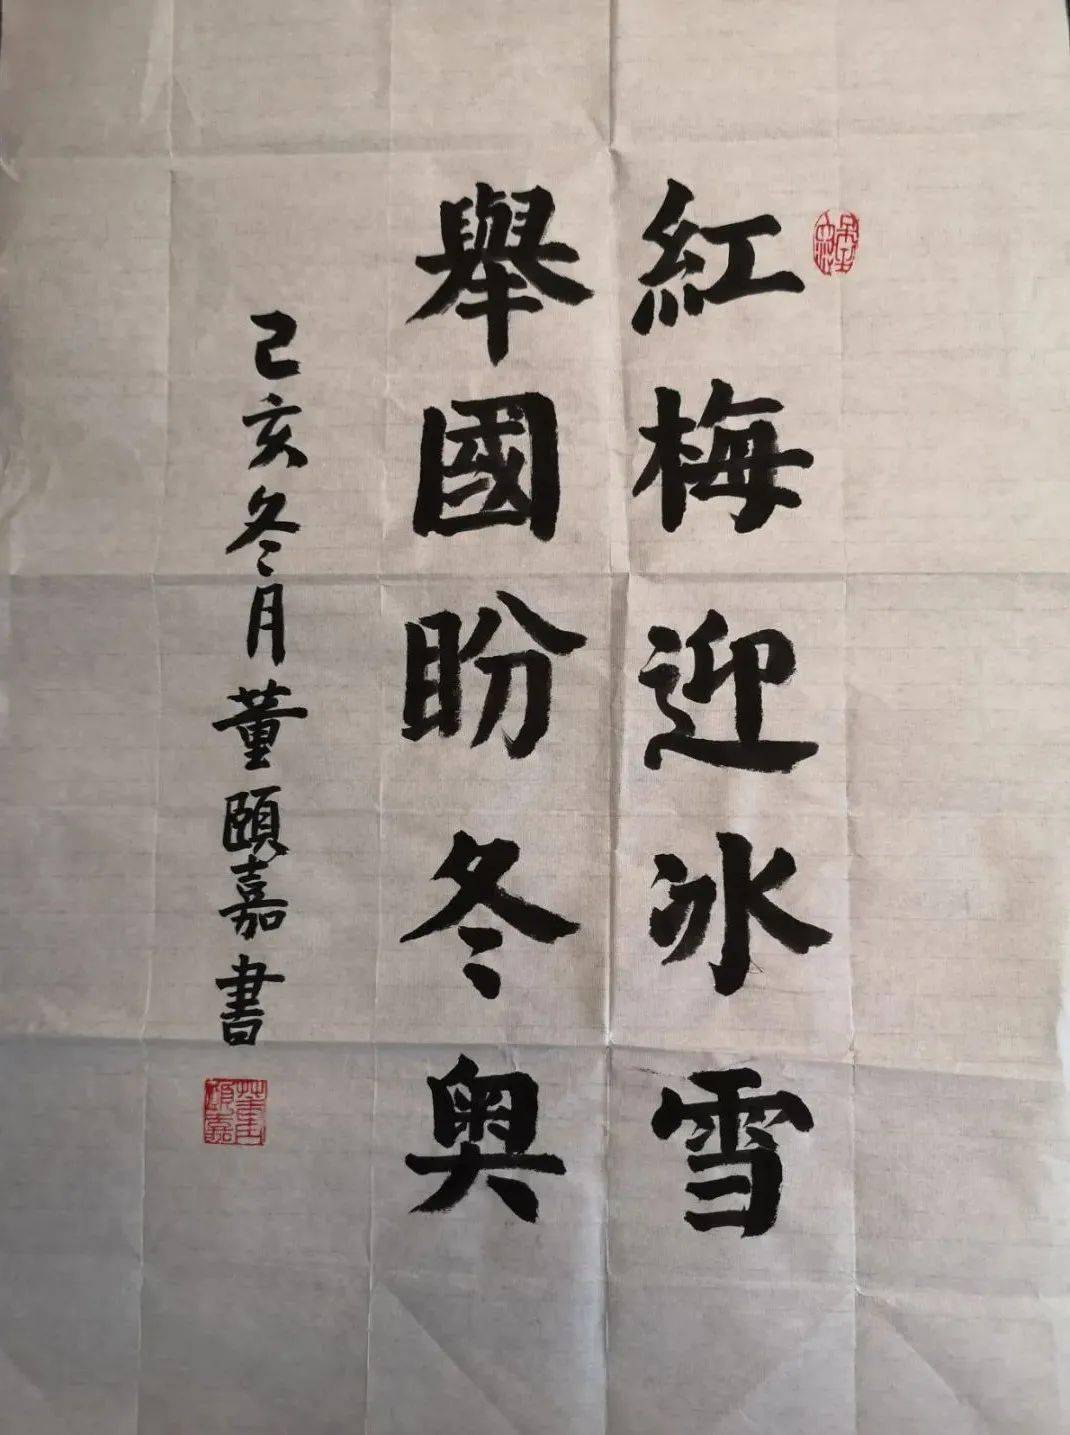 紅梅迎冰雪
舉國盼冬奥
己亥冬月董頤嘉書
董頤嘉